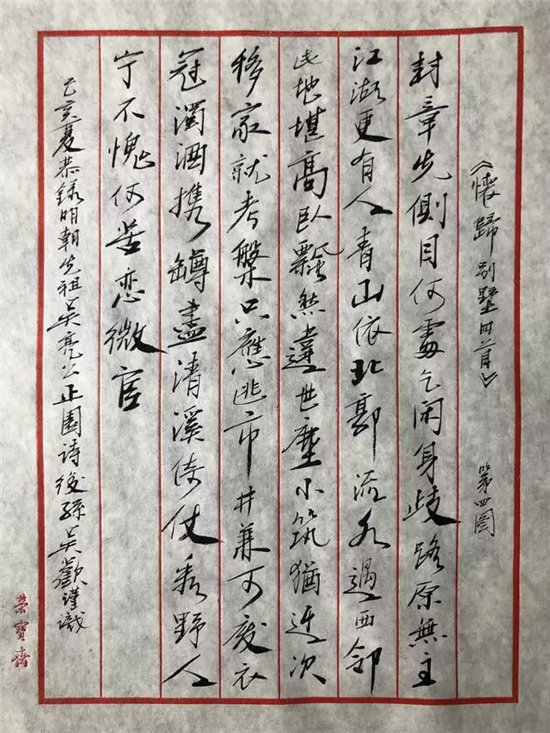 《懷歸别墅四首》 第四图
封章先側目何處乞闲身歧路原無主
江湖更有人青山依北郭流水過西邻
此地堪高臥飄然違世塵小筑猶迟次
移家就考槃只應逃市井兼可废衣
冠濁酒携罇盡清溪倚仗看野人
宁不愧何苦恋微官
己亥夏恭録明朝先祖吴亮公止園诗後孫吴歡謹識
荣寶齋